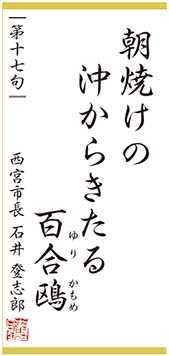 朝焼けの
沖からきたる
百合鴎
ゆり
かもめ
第十七句
西宮市長 石井 登志郎